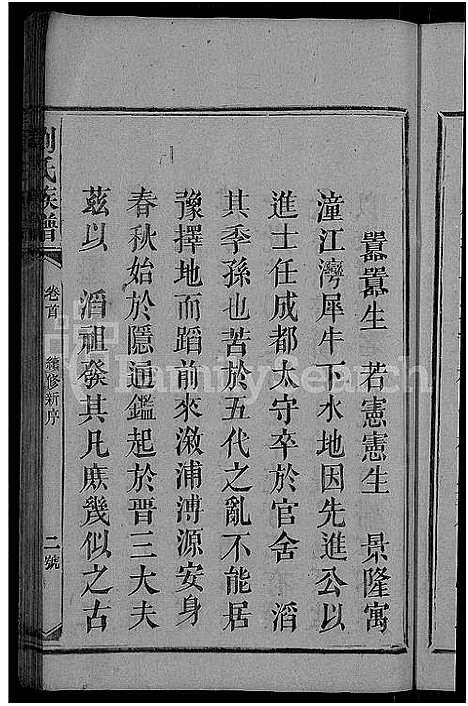 囂囂生　若憲憲生　景隆寓
潼江灣犀牛下水地因先進公以
進士任成都太守卒於官舍　滔
其季孫也苦於五代之亂不能居
豫擇地而蹈前來漵浦溥源安身
春秋始於隱通鑑起於晋三大夫
茲以　滔祖發其凡庶幾似之古
劉氏族譜
卷首
續修新序
二號
FamilySearch